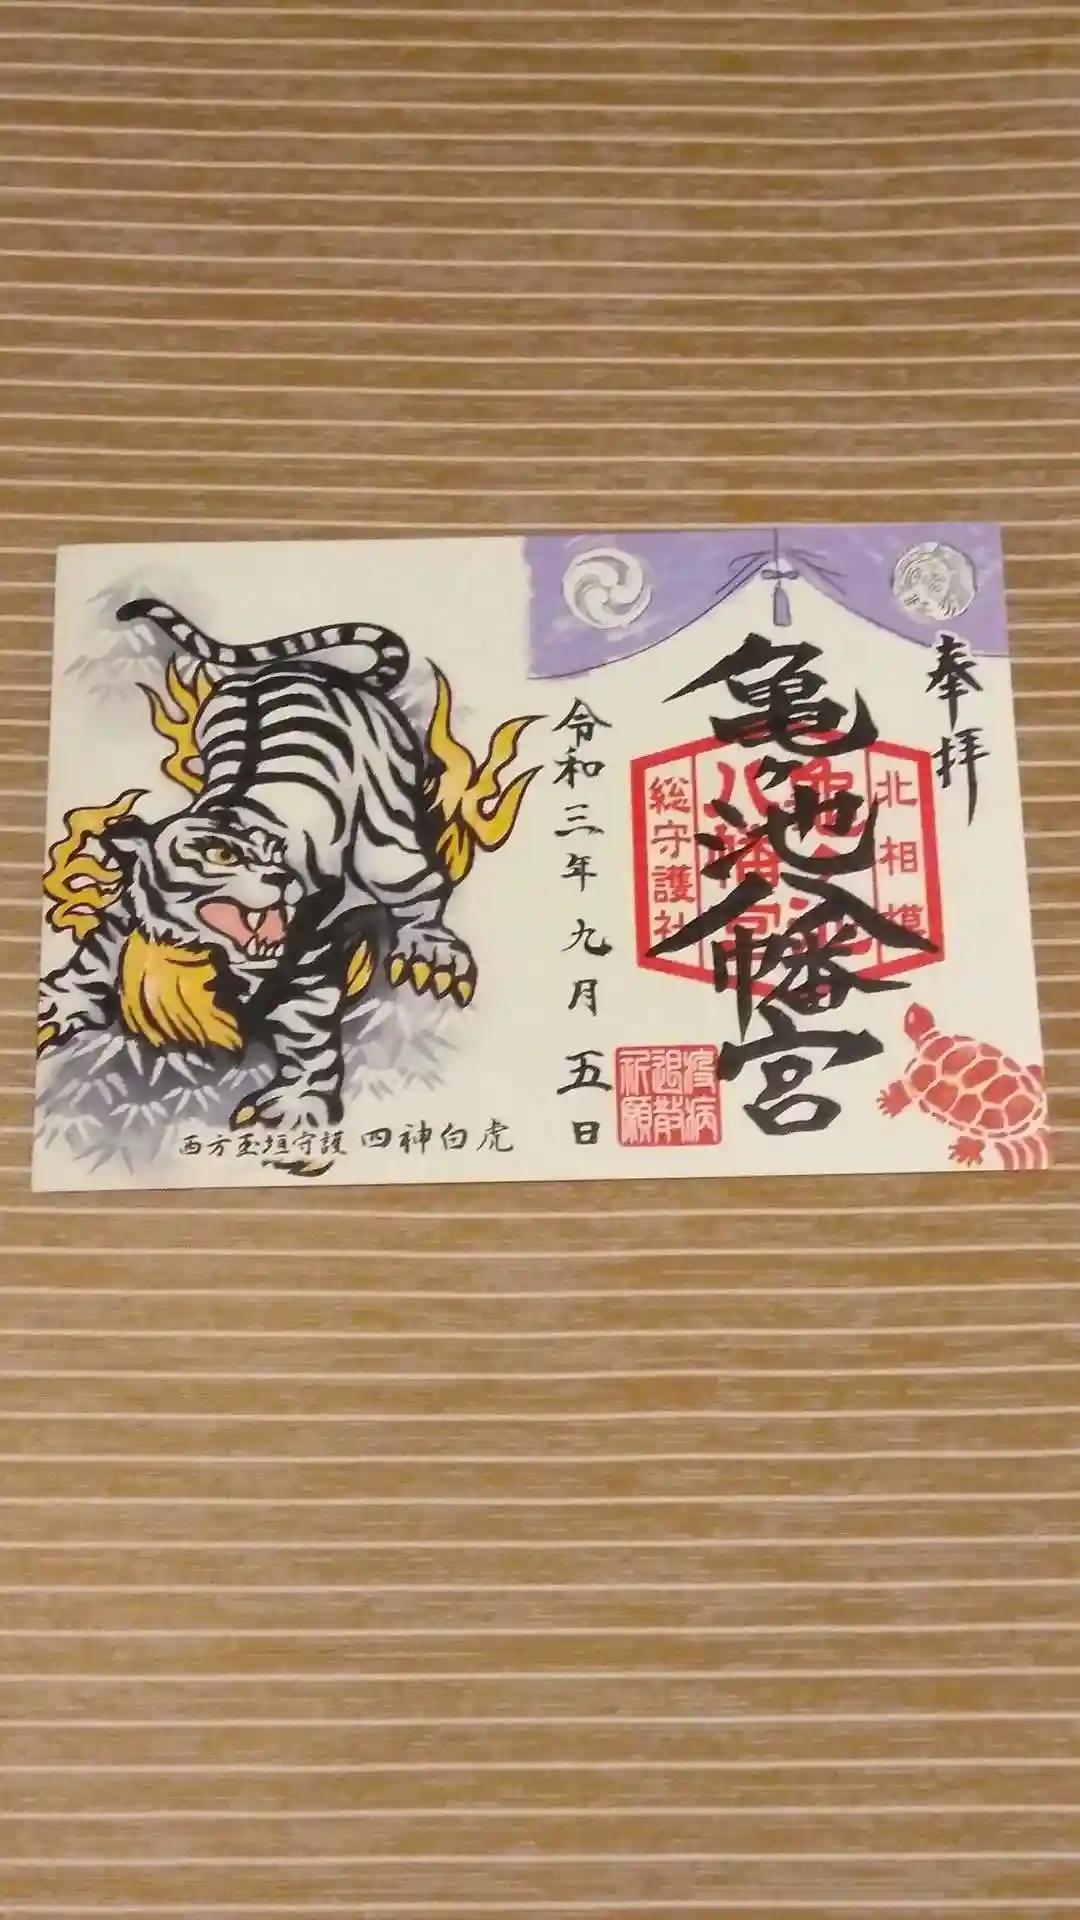 奉拝
亀ヶ池八幡宮
北相模
亀ヶ池
八幡宮
総守護社
疫病
退散
祈願
令和三年九月五日
西方玉垣守護 四神白虎